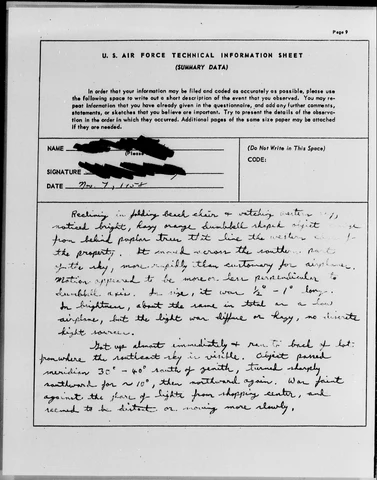 Page 9
U. S. AIR FORCE TECHNICAL INFORMATION SHEET
(SUMMARY DATA)
In order that your information may be filed and coded as accurately as possible, please use
the following space to write out a short description of the event that you observed. You may re-
peat information that you have already given in the questionnaire, and add any further comments,
statements, or sketches that you believe are important. Try to present the details of the observa-
tion in the order in which they occurred. Additional pages of the same size paper may be attached
if they are needed.
NAME
(Please
(Do Not Write in This Space)
SIGNATURE
CODE:
DATE Nov. 7,
Reclining in folding beach chair & watching western sky,
noticed bright, hazy orange dumbbell shaped object
from behind poplar trees that line the western
the property. It moved across the southern part
of the sky, more rapidly than customary for airplanes.
Motion appeared to be more or less perpendicular to
dumbbell axis. In size, it was ½° - 1° long.
In brightness, about the same in total as a
airplane, but the light was diffuse or hazy, no discrete
light sources.
Got up almost immediately & ran to back of lot
from where the southeast sky is visible. Object passed
meridian 30° - 40° south of zenith, turned sharply
southward for ~ 10°, then northward again. Was faint
against the glare of lights from shopping center, and
seemed to be distant or moving more slowly.